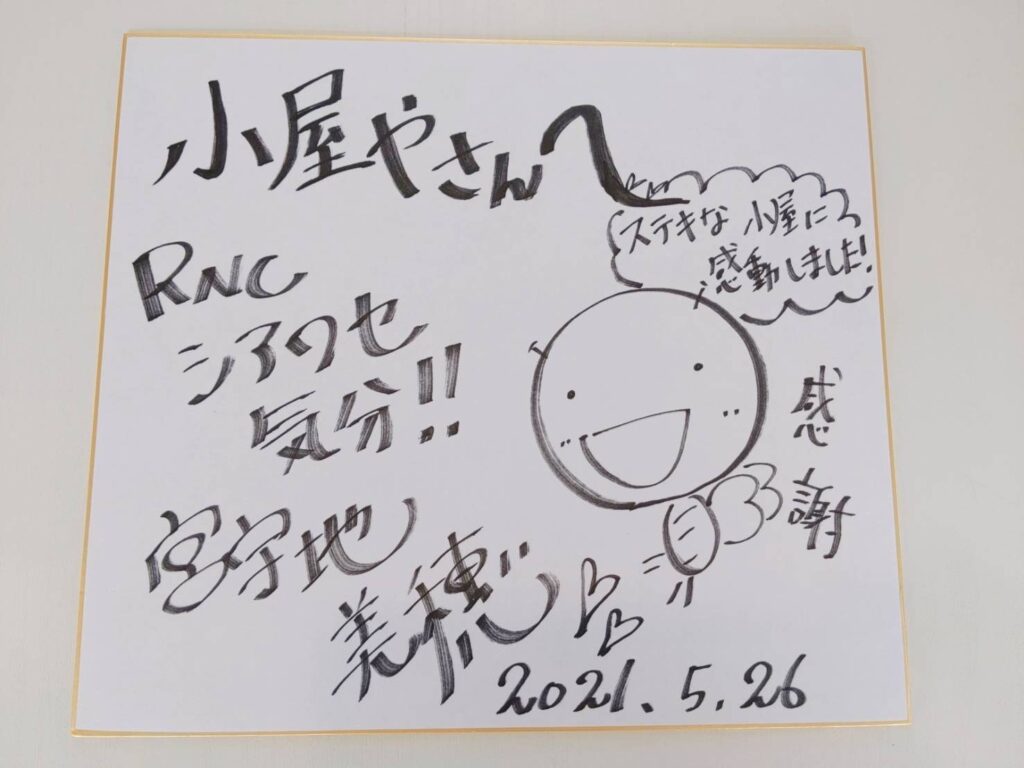 小屋やさんへ
ステキな小屋に
感動しました!
RNC
シアワセ
気分!!
感謝
宮守地
美穂
2021.5.26